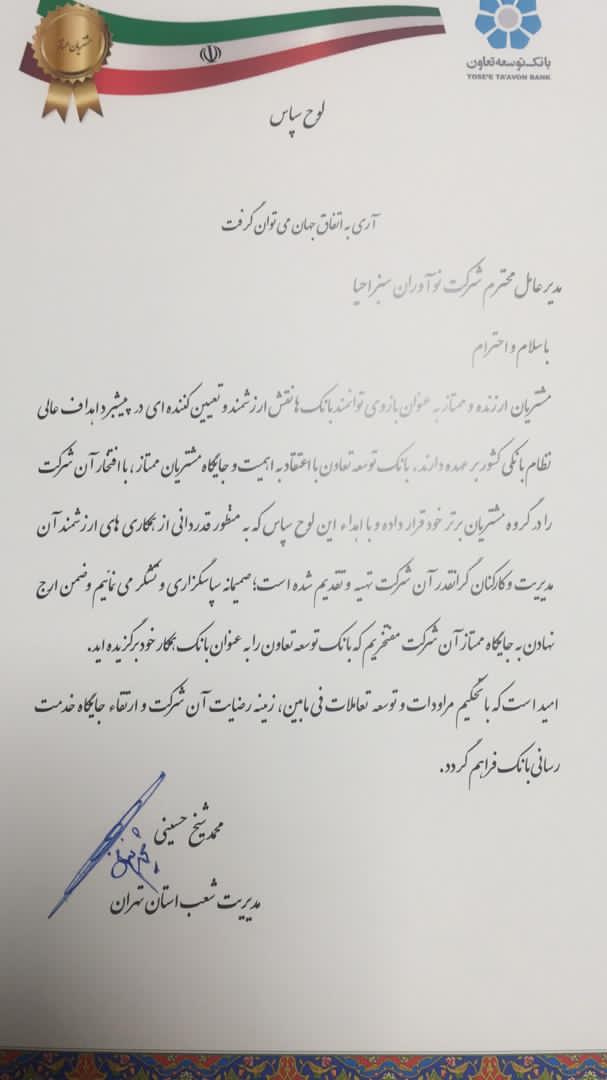 مشتریان ممتاز
بانک توسعه تعاون
TOSE'E TA'AVON BANK
لوح سپاس
آری به اتفاق جهان می توان گرفت
مدیر عامل محترم شرکت نوآوران سبز احیا
با سلام و احترام
مشتریان ارزنده و ممتاز به عنوان بازوی توانمند بانک ها نقش ارزشمند و تعیین کننده ای در پیشبرد اهداف عالی
نظام بانکی کشور بر عهده دارند. بانک توسعه تعاون با اعتقاد به اهمیت و جایگاه مشتریان ممتاز، با افتخار آن شرکت
را در گروه مشتریان برتر خود قرار داده و با اهداء این لوح سپاس که به منظور قدردانی از همکاری های ارزشمند آن
مدیریت و کارکنان گرانقدر آن شرکت تهیه و تقدیم شده است؛ صمیمانه سپاسگزاری و تشکر می نمائیم و ضمن ارج
نهادن به جایگاه ممتاز آن شرکت مفتخریم که بانک توسعه تعاون را به عنوان بانک همکار خود برگزیده اید.
امید است که با تحکیم مراودات و توسعه تعاملات فی مابین، زمینه رضایت آن شرکت و ارتقاء جایگاه خدمت
رسانی بانک فراهم گردد.
محمد شیخ حسینی
مدیریت شعب استان تهران